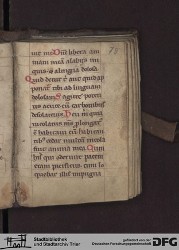 uit me Dñe libera ani
mam meā a labiis ini
quis et a lingua dolosa
Quid detur t aut quid ap
ponat tibi ad linguam
dolosam Sagitte poten
tis acute cū carbonibus
desolatoriis Heu m quia
incolatus ms plongat
ē habitaui cū habitan
tib cedar multū incola
fuit anima mea Cum
his qui oderunt pacem
eram pacificus cum lo
quebar illis impugna
Stadtbibliothek
und Stadtarchiv Trier
gefördert von der
Deutschen Forschungsgemeinschaft
DFG